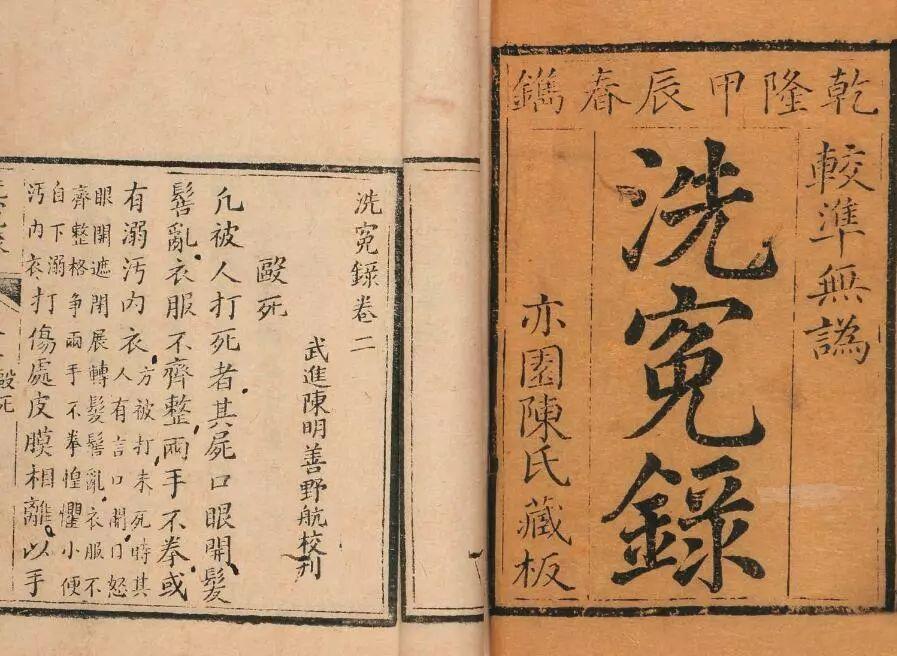 乾隆甲辰春鐫
較準無譌
洗寃錄
亦園陳氏藏板
洗寃錄卷二
武進陳明善野航校刊
毆死
凡被人打死者其屍口眼開髮
髻亂衣服不齊整兩手不拳或
有溺汚內衣
方被打未死時其
人有言口開目怒
眼開遮閉展轉髮髻亂衣服不
齊整格爭兩手不拳惶懼小便
自下溺
汚內衣
打傷處皮膜相離以手